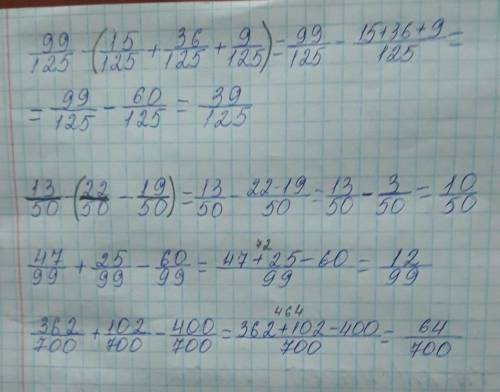 99/125 - (15/125 + 36/125 + 9/125) = 99/125 - 15+36+9/125 =
= 99/125 - 60/125 = 39/125
13/50 - (22/50 - 19/50) = 13/50 - 22-19/50 = 13/50 - 3/50 = 10/50
72
47/99 + 25/99 - 60/99 = 47+25-60/99 = 12/99
464
362/700 + 102/700 - 400/700 = 362+102-400/700 = 64/700